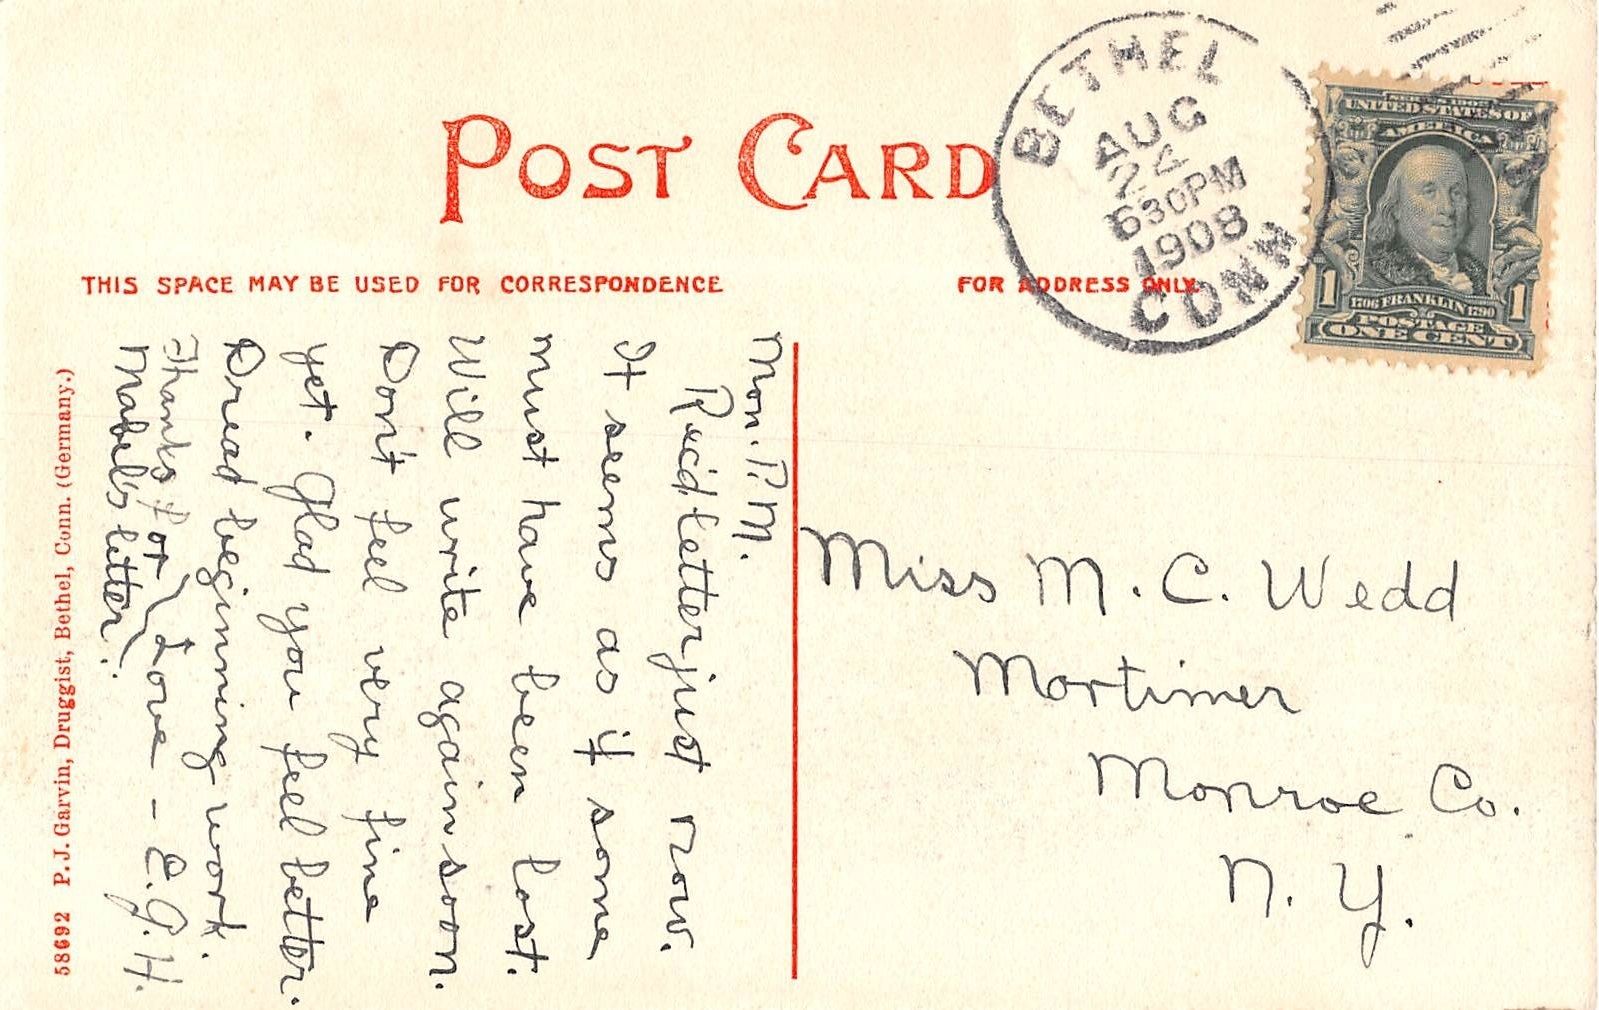 POST CARD
THIS SPACE MAY BE USED FOR CORRESPONDENCE
FOR ADDRESS ONLY.
BETHEL
AUG
24
630PM
1908
CONN.
UNITED STATES OF
AMERICA
1 1706 FRANKLIN 1790 1
POSTAGE
ONE CENT
Mon. P.M.
Rec'd letter just now.
It seems as if some
must have been lost.
Will write again soon.
Don't feel very fine
yet. Glad you feel better.
Dread beginning work.
Thanks for Love - E.G.H.
Mabel's letter.
Miss M. C. Wedd
Mortimer
Monroe Co.
N. Y.
58692 P.J. Garvin, Druggist, Bethel, Conn. (Germany.)